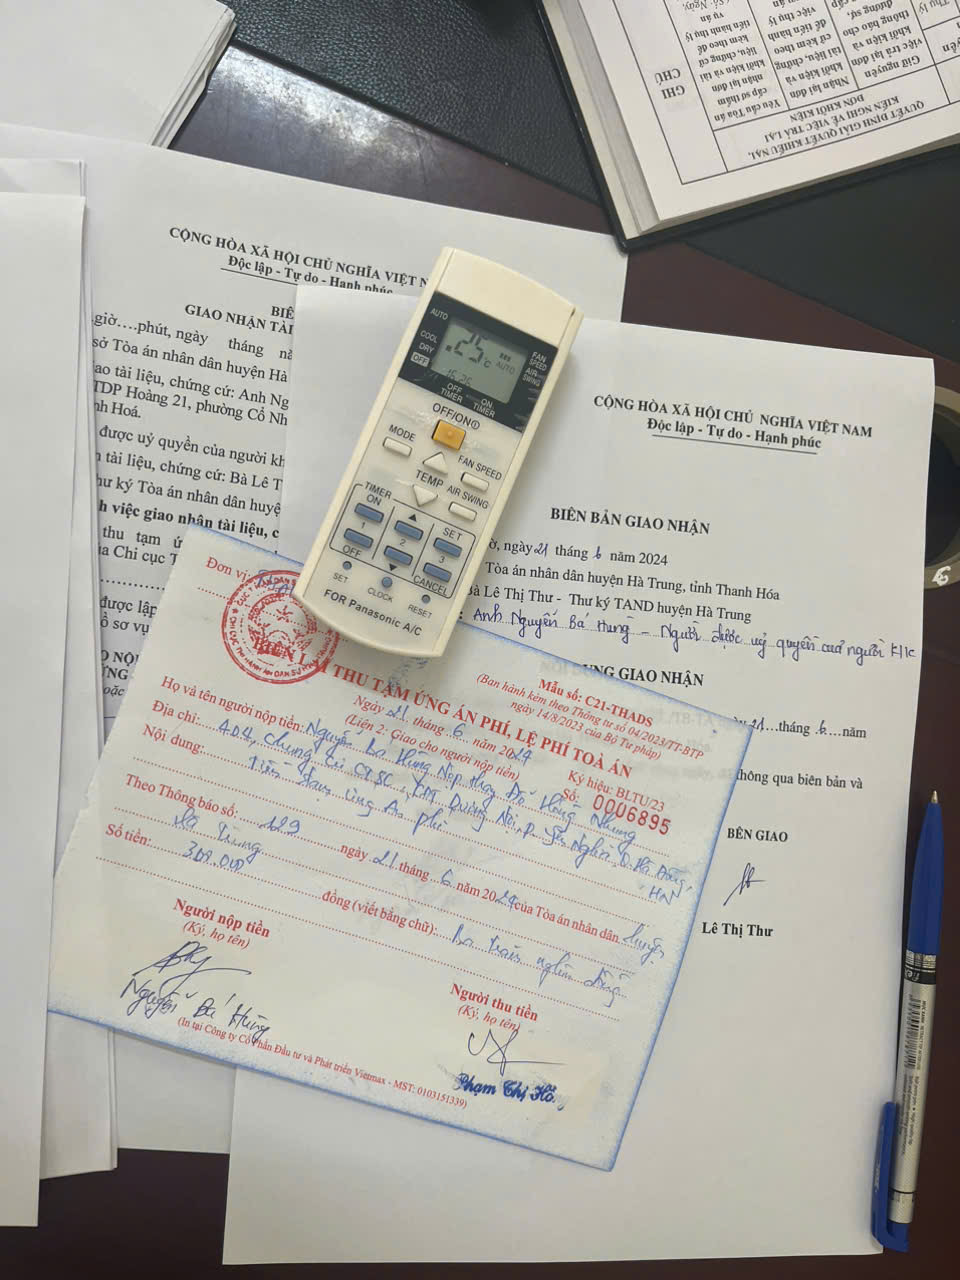 GHI
CHÚ
Yêu cầu Tòa án
cấp sơ thẩm
nhận lại đơn
khởi kiện và tài
liệu, chứng cứ
kèm theo để
tiến hành thụ lý
vụ án
Nhận lại đơn
khởi kiện và
tài liệu, chứng
cứ kèm theo
để tiến hành
việc thụ lý
Giữ nguyên
việc trả lại đơn
khởi kiện và
thông báo cho
đương sự,
QUYẾT ĐỊNH GIẢI QUYẾT KHIẾU NẠI,
KIẾN NGHỊ VỀ VIỆC TRẢ LẠI
ĐƠN KHỞI KIỆN
CỘNG HÒA XÃ HỘI CHỦ NGHĨA VIỆT
Độc lập - Tự do - Hạnh phúc
BIÊ
GIAO NHẬN TÀI
giờ….phút, ngày tháng nă
sở Tòa án nhân dân huyện Hà
ao tài liệu, chứng cứ: Anh Ng
TDP Hoàng 21, phường Cổ Nh
nh Hoá.
được uỷ quyền của người kh
n tài liệu, chứng cứ: Bà Lê T
hư ký Tòa án nhân dân huyệ
h việc giao nhận tài liệu, c
thu tạm ứ
ủa Chi cục T
được lập
ồ sơ vụ
AUTO
COOL
DRY
OFF
25°C
AUTO
FAN
SPEED
AIR
SWING
OFF
TIMER
ON
TIMER
OFF/ON
MODE
FAN SPEED
TEMP
AIR SWING
TIMER
ON
SET
1
2
3
OFF
CANCEL
SET
CLOCK
RESET
FOR Panasonic A/C
CỘNG HÒA XÃ HỘI CHỦ NGHĨA VIỆT NAM
Độc lập - Tự do - Hạnh phúc
BIÊN BẢN GIAO NHẬN
ờ, ngày 21 tháng 6 năm 2024
Tòa án nhân dân huyện Hà Trung, tỉnh Thanh Hóa
à Lê Thị Thư - Thư ký TAND huyện Hà Trung
: Anh Nguyễn Bá Hùng - Người được uỷ quyền của người K/K
DUNG GIAO NHẬN
21...tháng..6...năm
thông qua biên bản và
BÊN GIAO
Lê Thị Thư
Đơn vị:
BIÊN LAI THU TẠM ỨNG ÁN PHÍ, LỆ PHÍ TOÀ ÁN
Ngày 21 tháng 6 năm 2024
(Liên 2: Giao cho người nộp tiền)
Mẫu số: C21-THADS
(Ban hành kèm theo Thông tư số 04/2023/TT-BTP
ngày 14/8/2023 của Bộ Tư pháp)
Ký hiệu: BLTU/23
Số: 0006895
Họ và tên người nộp tiền: Nguyễn Bá Hùng Nộp thay Đỗ Hồng Nhung
Địa chỉ: 404, Chung cư CT5C, KĐT Dương Nội, P. Yên Nghĩa Q. Hà Đông, HN
Nội dung: Tiền tạm ứng Án phí
Theo Thông báo số: 129 ngày 21 tháng 6 năm 2024 của Tòa án nhân dân huyện
Hà Trung
Số tiền: 300.000 đồng (viết bằng chữ): Ba trăm nghìn đồng
Người nộp tiền
(Ký, họ tên)
Nguyễn Bá Hùng
Người thu tiền
(Ký, họ tên)
Phạm Thị Hồng
(In tại Công ty Cổ Phần Đầu tư và Phát triển Vietmax - MST: 0103151339)